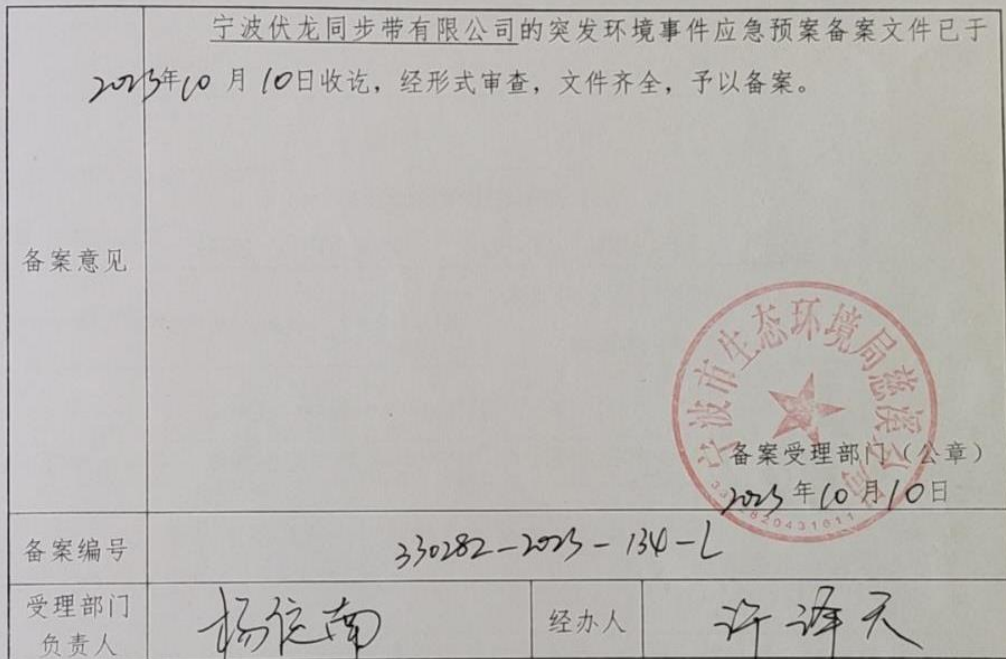 宁波伏龙同步带有限公司的突发环境事件应急预案备案文件已于
2023年10月10日收讫，经形式审查，文件齐全，予以备案。
备案意见
宁波市生态环境局慈溪分局
备案受理部门（公章）
2023年10月10日
备案编号
330282-2023-134-L
受理部门
负责人
经办人
许泽天